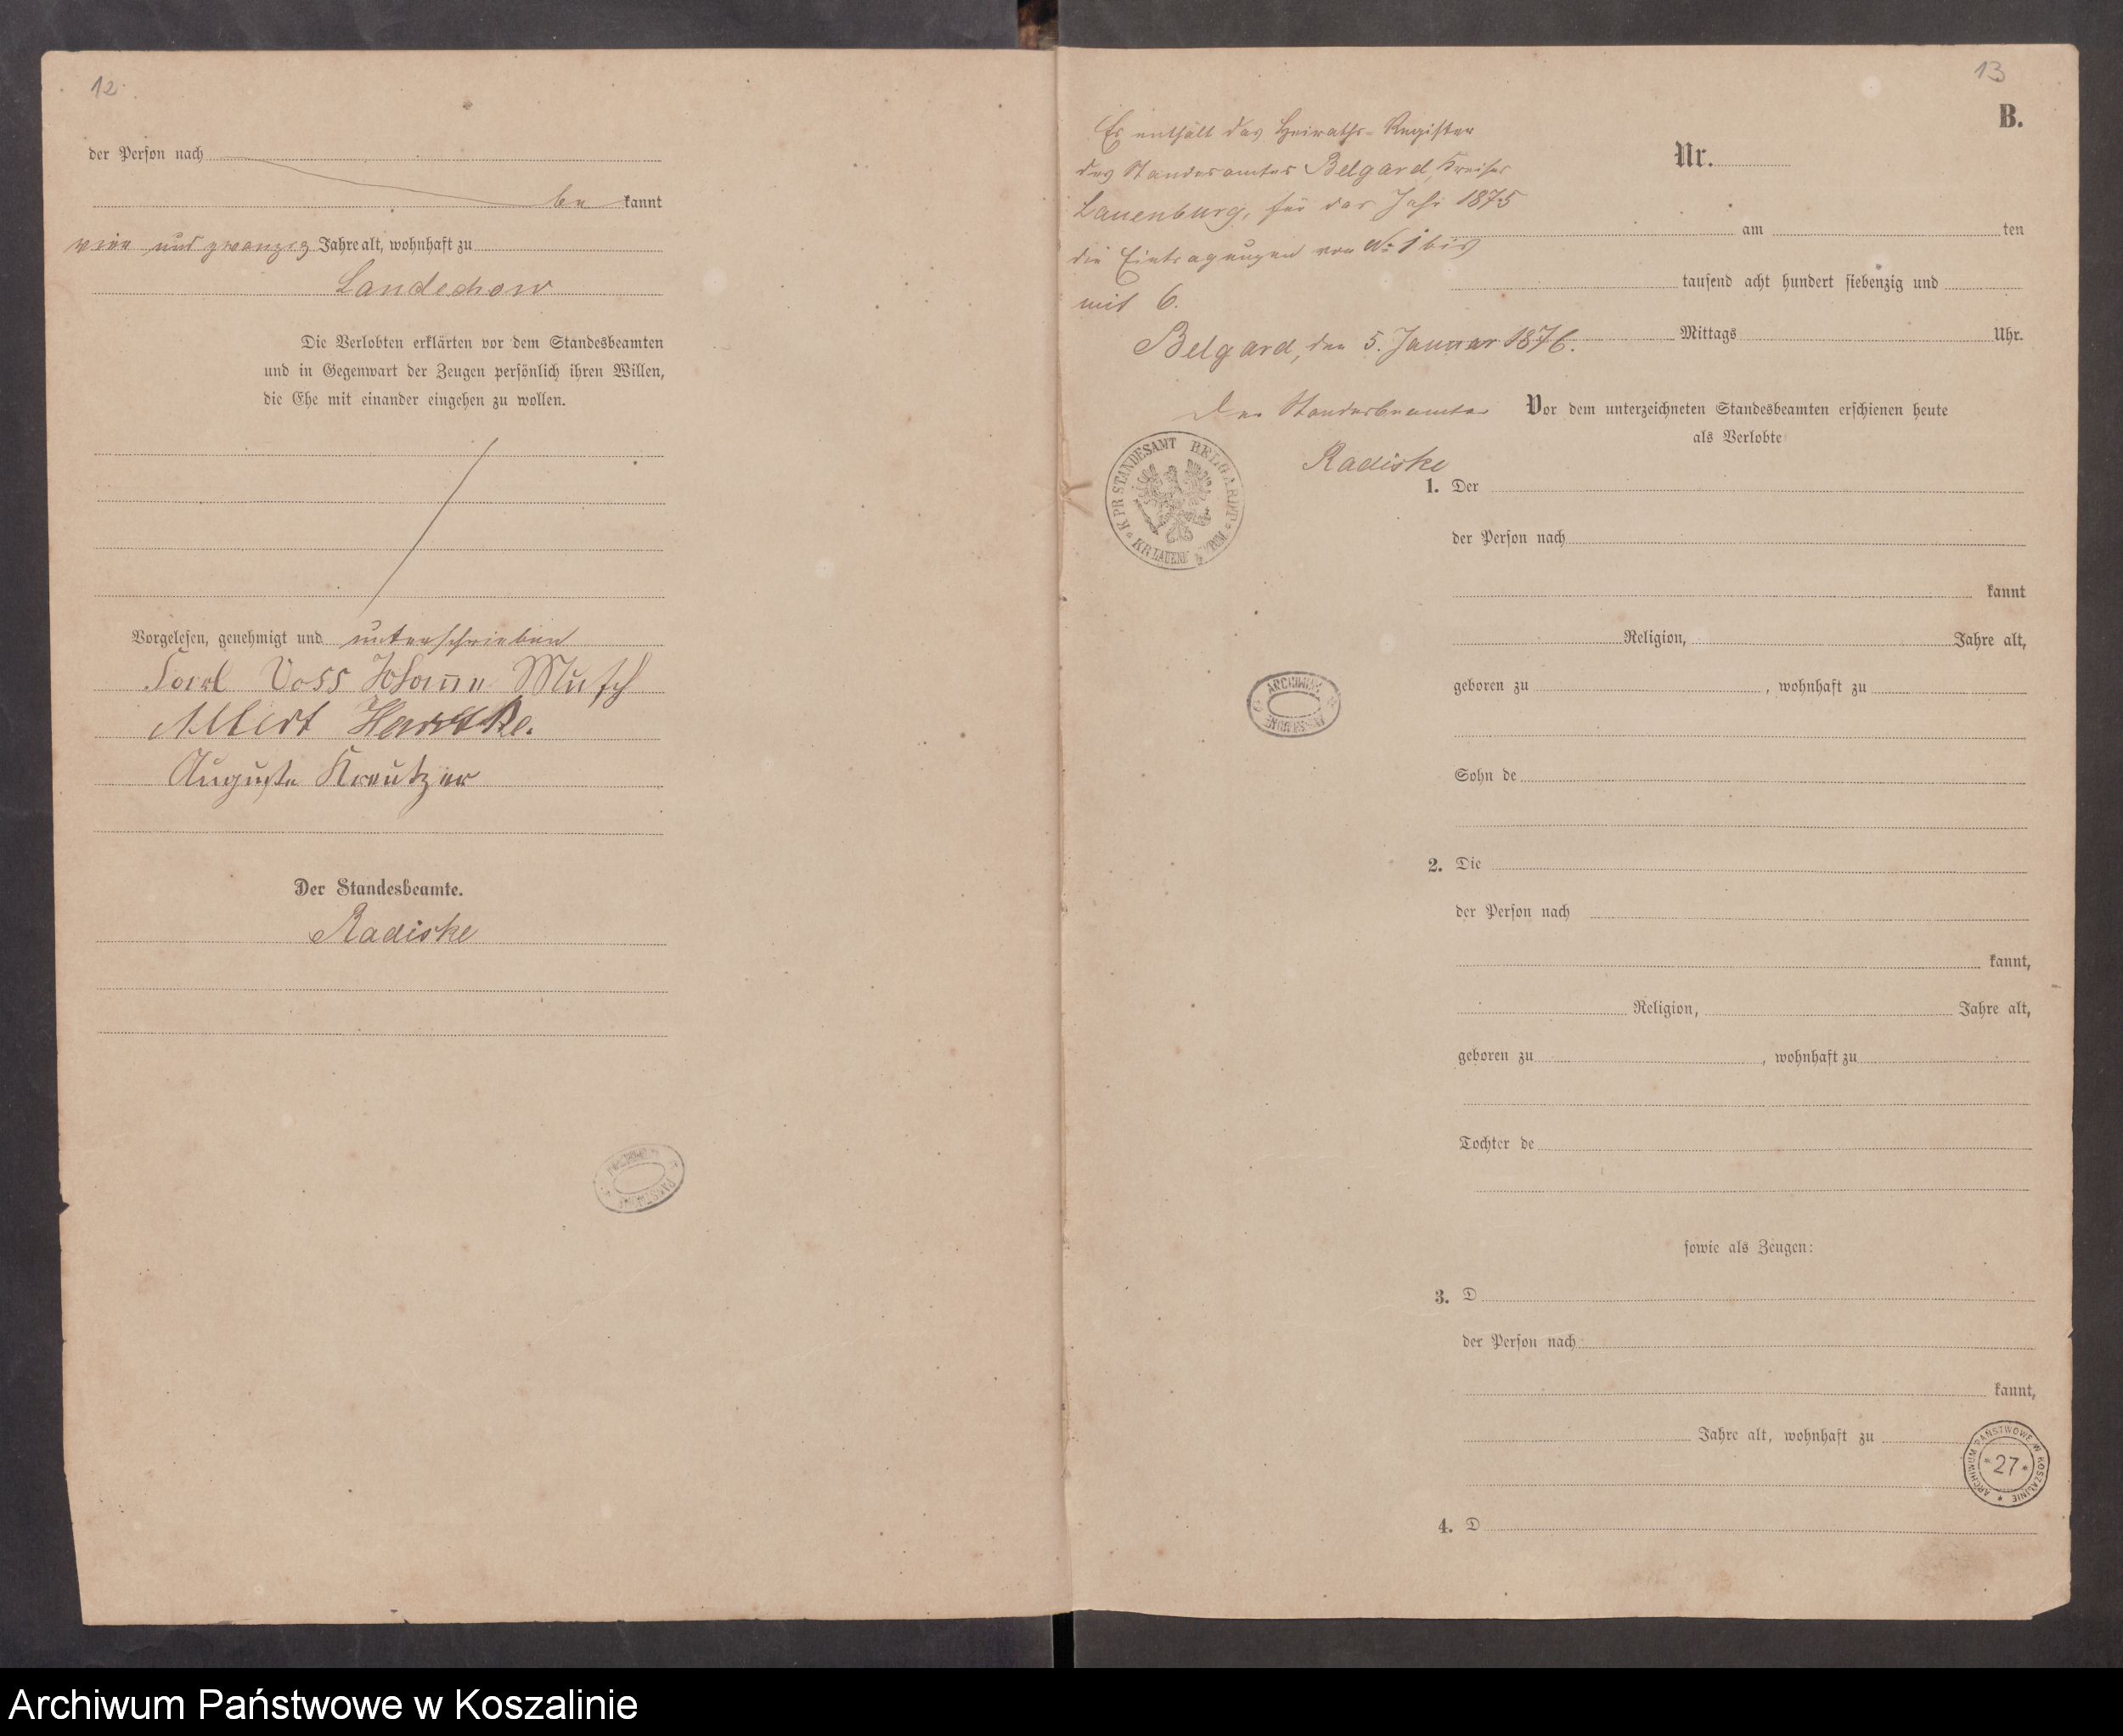 12
der Person nach
be kannt
vier und zwanzig Jahre alt, wohnhaft zu
Landechow
Die Verlobten erklärten vor dem Standesbeamten
und in Gegenwart der Zeugen persönlich ihren Willen,
die Ehe mit einander eingehen zu wollen.
Vorgelesen, genehmigt und unterschrieben
Carl Voss Johanne Mutsch
Albert
Auguste Kreutzer
Der Standesbeamte.
Radiske
13
B.
Es enthält das Heiraths-Register
des Standesamtes Belgard, Kreises
Lauenburg, für das Jahr 1875
die Eintragungen von No 1 bis
mit 6.
Belgard, den 5. Januar 1876.
Der Standesbeamte
Radiske
K. PR. STANDESAMT BELGARD
KR. LAUENB. i/POM.
ARCHIWUM
PAŃSTWOWE
Nr.
am ten
tausend acht hundert siebenzig und
Mittags Uhr.
Vor dem unterzeichneten Standesbeamten erschienen heute
als Verlobte
1. Der
der Person nach
kannt
Religion, Jahre alt,
geboren zu , wohnhaft zu
Sohn de
2. Die
der Person nach
kannt,
Religion, Jahre alt,
geboren zu , wohnhaft zu
Tochter de
sowie als Zeugen:
3. D
der Person nach
kannt,
Jahre alt, wohnhaft zu
ARCHIWUM PAŃSTWOWE W KOSZALINIE
*27*
4. D
Archiwum Państwowe w Koszalinie